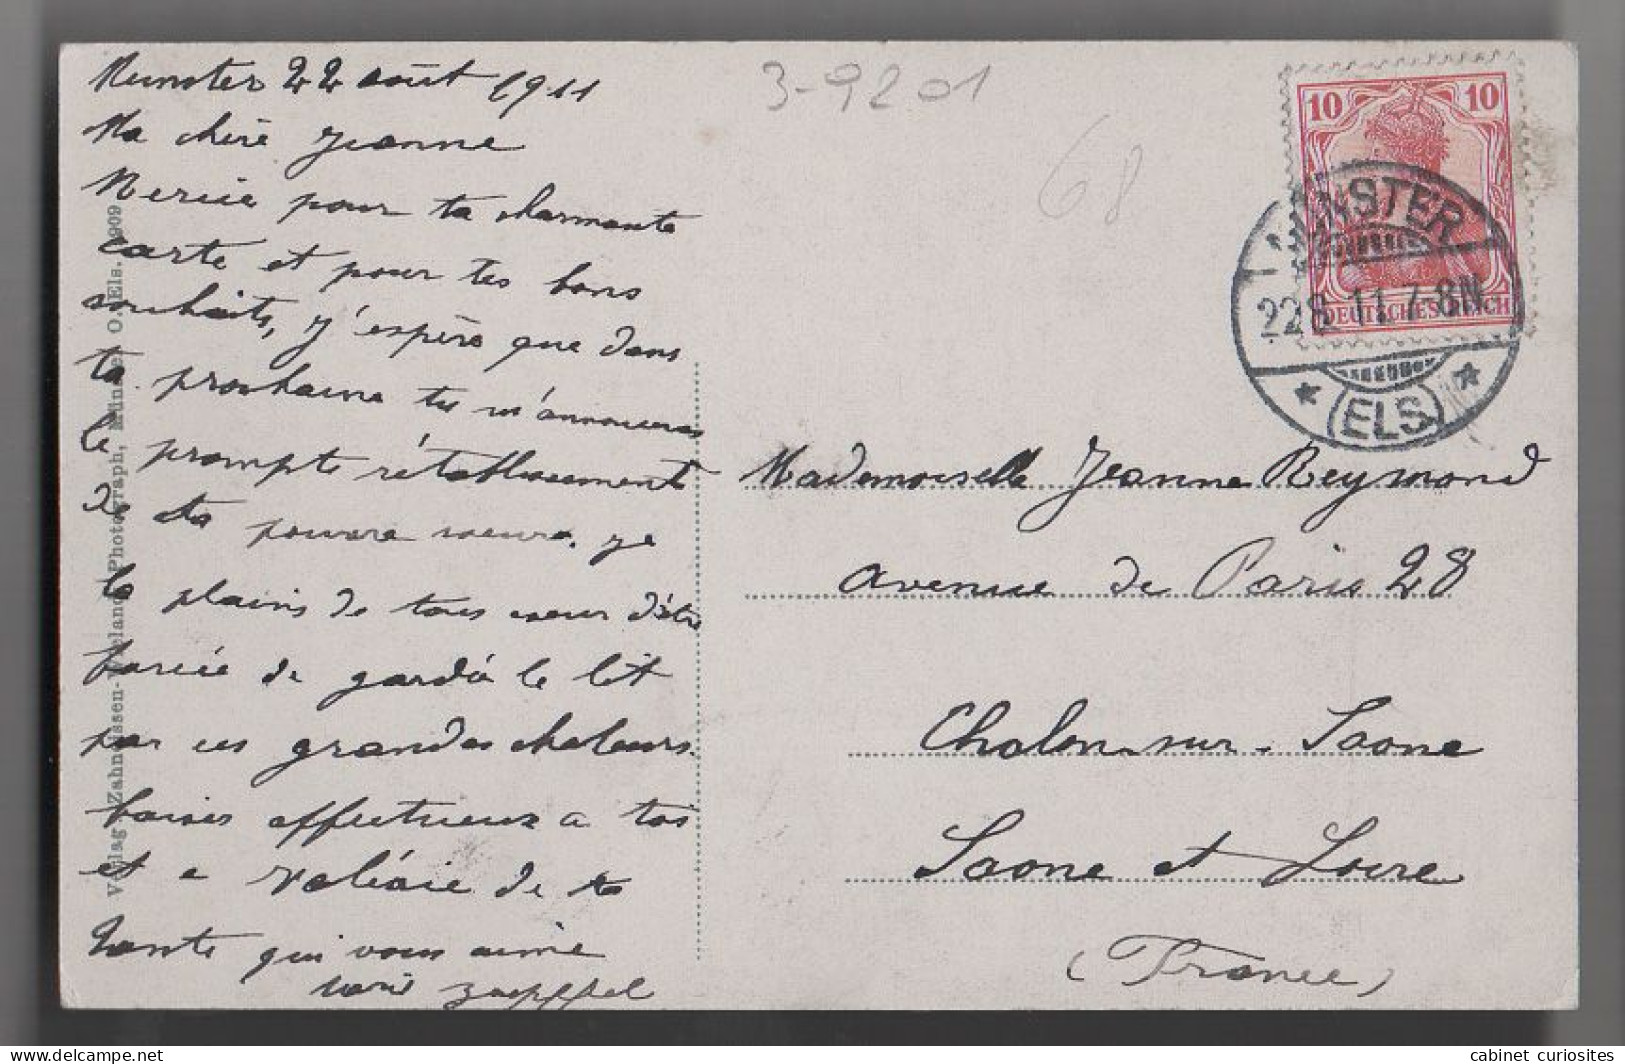 Munster 22 août 1911
Ma chère Jeanne
Mercie pour ta charmante
carte et pour tes bons
souhaits, j'espère que dans
ta prochaine tu m'annonceras
le prompte rétablissement
de ta pauvre soeur, je
la plains de tous coeur d'être
forcée de gardé le lit
par ces grandes chaleurs.
baises affectueux a toi
et a Valérie de ta
tante qui vous aime
Marie Zaepffel
3-9201
68
10 10
DEUTSCHES REICH
MÜNSTER
22.8.11.7-8N
* (ELS.) *
Mademoiselle Jeanne Reymond
avenue de Paris 28
Chalon-sur-Saone
Saone et Loire
(France)
Verlag Zahneissen-Wieland, Photograph, Münster O.-Els. 1909
cabinet_curiosites